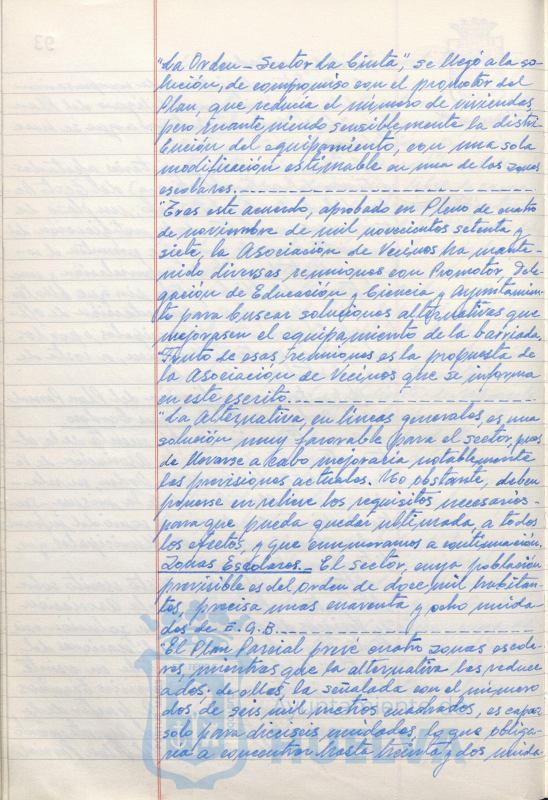 "La Orden - Sector La Cinta", se llegó a la so-
lución, de compromiso con el promotor del
Plan, que reducía el número de viviendas
pero manteniendo sensiblemente la distri-
bución del equipamiento, con una sola
modificación estimable en una de las zonas
escolares.
"Tras este acuerdo, aprobado en Pleno de cuatro
de noviembre de mil novecientos setenta y
siete, la Asociación de Vecinos ha mante-
nido diversas reuniones con Promotor, Dele-
gación de Educación y Ciencia y Ayuntamien-
to para buscar soluciones alternativas que
mejorasen el equipamiento de la barriada.
"Fruto de esas reuniones es la propuesta de
la Asociación de Vecinos que se informa
en este escrito.
"La Alternativa, en líneas generales, es una
solución muy favorable para el sector, pues
de llevarse a cabo mejoraría notablemente
las previsiones actuales. No obstante, deben
ponerse en relieve los requisitos necesarios -
para que pueda quedar ultimada, a todos
los efectos, y que enumeramos a continuación.
Zonas Escolares.- El sector, cuya población
previsible es del orden de doce mil habitan-
tes, precisa unas cuarenta y ocho unida-
des de E.G.B.
"El Plan Parcial prevé cuatro zonas escola-
res, mientras que la alternativa las reduce
a dos. de ellas, la señalada con el número
dos, de seis mil metros cuadrados, es capaz
solo para dieciseis unidades, lo que obliga-
ría a concentrar hasta treinta y dos unida-
HUELVA
93